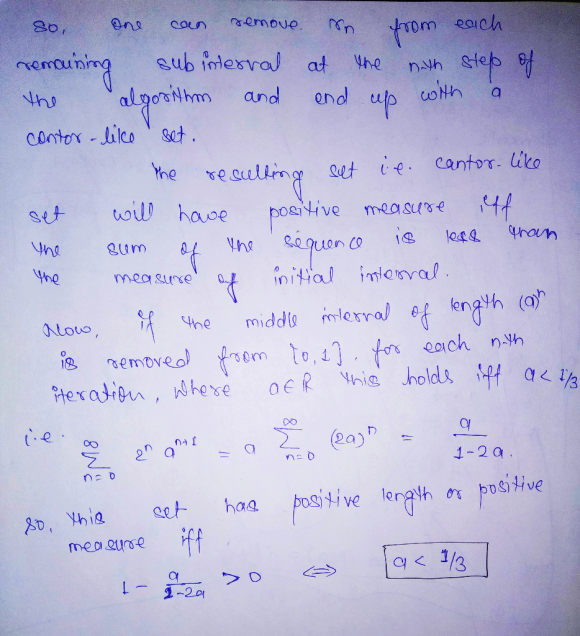 So, One can remove rn from each
remaining subinterval at the n-th step of
the algorithm and end up with a
cantor-like set.
The resulting set i.e. cantor-like
set will have positive measure iff
the sum of the sequence is less than
the measure of initial interval.
Now, if the middle interval of length (a)ⁿ
is removed from [0,1], for each n-th
iteration, where a ∈ R this holds iff a < 1/3
i.e. ∞∑n=0 2ⁿ aⁿ⁺¹ = a ∞∑n=0 (2a)ⁿ = a/1-2a.
So, this set has positive length or positive
measure iff
1 - a/1-2a > 0 ⇔ a < 1/3